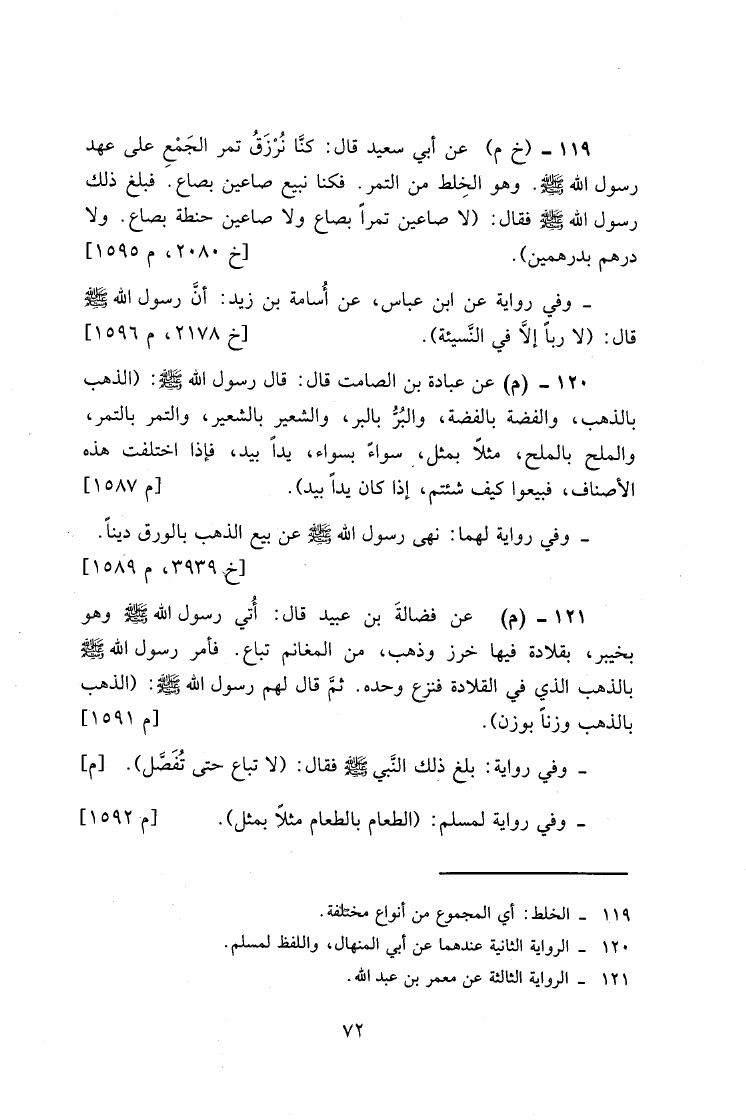 ١١٩ ـ (خ م) عن أبي سعيد قال: كنَّا نُرْزَقُ تمر الجَمْعِ على عهد
رسول الله ﷺ. وهو الخِلط من التمر. فكنا نبيع صاعين بصاع. فبلغ ذلك
رسول الله ﷺ فقال: (لا صاعين تمراً بصاع ولا صاعين حنطة بصاع. ولا
درهم بدرهمين). [خ ٢٠٨٠، م ١٥٩٥]
ـ وفي رواية عن ابن عباس، عن أُسامة بن زيد: أنَّ رسول الله ﷺ
قال: (لا رباً إلاَّ في النَّسيئة). [خ ٢١٧٨، م ١٥٩٦]
١٢٠ ـ (م) عن عبادة بن الصامت قال: قال رسول الله ﷺ: (الذهب
بالذهب، والفضة بالفضة، والبرُّ بالبر، والشعير بالشعير، والتمر بالتمر،
والملح بالملح، مثلاً بمثل، سواءً بسواء، يداً بيد، فإذا اختلفت هذه
الأصناف، فبيعوا كيف شئتم، إذا كان يداً بيد). [م ١٥٨٧]
ـ وفي رواية لهما: نهى رسول الله ﷺ عن بيع الذهب بالورق ديناً.
[خ ٣٩٣٩، م ١٥٨٩]
١٢١ ـ (م) عن فضالةَ بن عبيد قال: أُتي رسول الله ﷺ وهو
بخيبر، بقلادة فيها خرز وذهب، من المغانم تباع. فأمر رسول الله ﷺ
بالذهب الذي في القلادة فنزع وحده. ثمَّ قال لهم رسول الله ﷺ: (الذهب
بالذهب وزناً بوزن). [م ١٥٩١]
ـ وفي رواية: بلغ ذلك النَّبي ﷺ فقال: (لا تباع حتى تُفَصَّل). [م]
ـ وفي رواية لمسلم: (الطعام بالطعام مثلاً بمثل). [م ١٥٩٢]
١١٩ ـ الخلط: أي المجموع من أنواع مختلفة.
١٢٠ ـ الرواية الثانية عندهما عن أبي المنهال، واللفظ لمسلم.
١٢١ ـ الرواية الثالثة عن معمر بن عبد الله.
٧٢